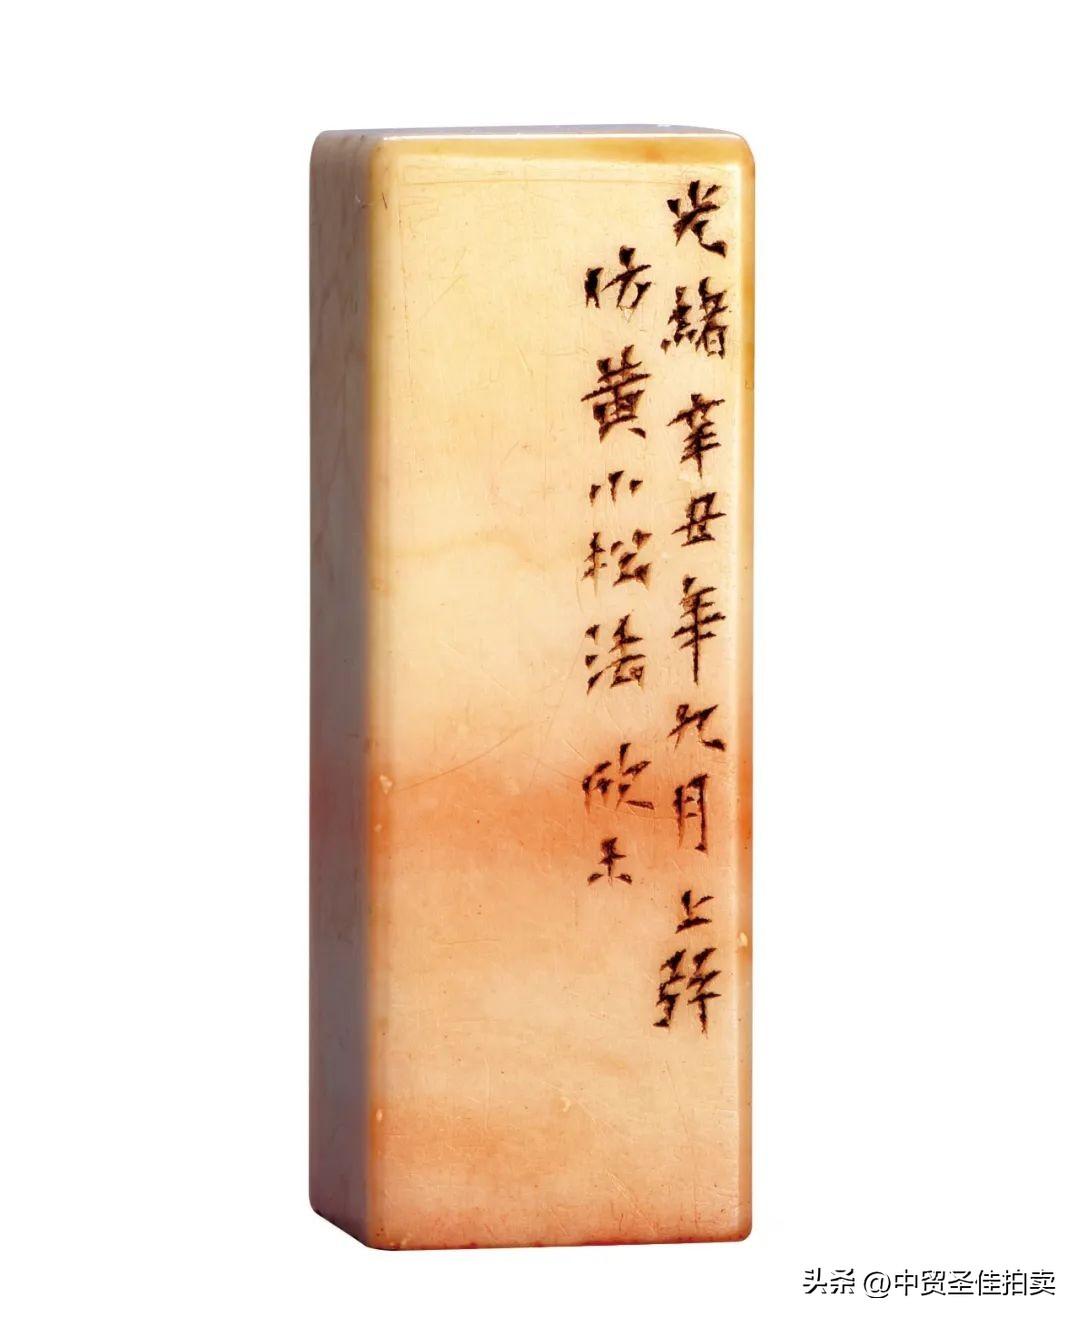 光緒辛丑年九月上弦
仿黃小松法 欣木
头条 @中贸圣佳拍卖